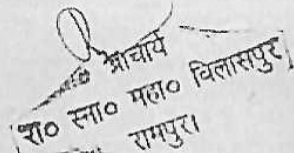 प्राचार्य
रा० स्ना० महा० विलासपुर
रामपुर।